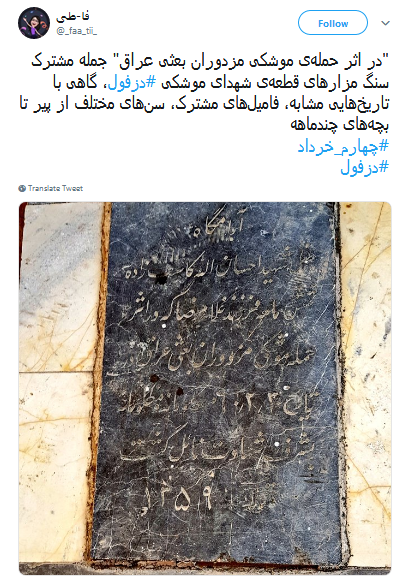 فا-طی
@_faa_tii_
Follow
"در اثر حمله‌ی موشکی مزدوران بعثی عراق" جمله مشترک
سنگ مزارهای قطعه‌ی شهدای موشکی #دزفول، گاهی با
تاریخ‌هایی مشابه، فامیل‌های مشترک، سن‌های مختلف از پیر تا
بچه‌های چندماهه
#چهارم_خرداد
#دزفول
Translate Tweet
آرامگاه
شهید احسان اله
ماهه فرزند غلامرضا که در اثر
حمله موشکی مزدوران بعثی عراق
تاریخ
بشرف شهادت نائل گشت
۱۳۵۹